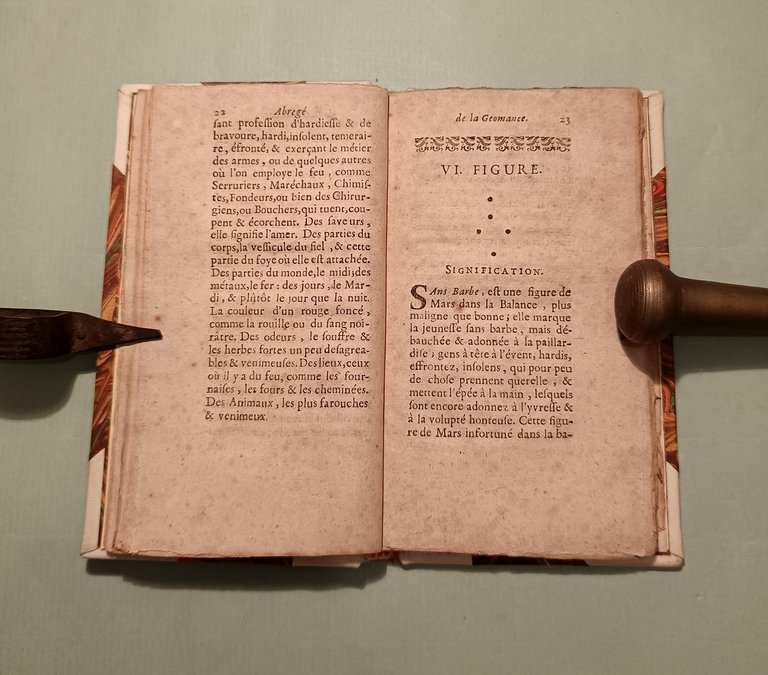 22 Abregé
ſant profeſſion d'hardieſſe & de
bravoure, hardi, inſolent, temerai-
re, éfronté, & exerçant le métier
des armes, ou de quelques autres
où l'on employe le feu, comme
Serruriers, Maréchaux, Chimiſ-
tes, Fondeurs, ou bien des Chirur-
giens, ou Bouchers, qui tuent, cou-
pent & écorchent. Des ſaveurs,
elle ſignifie l'amer. Des parties du
corps, la veſſicule du fiel, & cette
partie du foye où elle eſt attachée.
Des parties du monde, le midi; des
métaux, le fer: des jours, le Mar-
di, & plûtôt le jour que la nuit.
La couleur d'un rouge foncé,
comme la rouille ou du ſang noi-
râtre. Des odeurs, le ſouffre &
les herbes fortes un peu deſagrea-
bles & venimeuſes. Des lieux, ceux
où il y a du feu, comme les four-
naiſes, les fours & les cheminées.
Des Animaux, les plus farouches
& venimeux.
de la Geomance. 23
VI. FIGURE.
SIGNIFICATION.
SAns Barbe, eſt une figure de
Mars dans la Balance, plus
maligne que bonne; elle marque
la jeuneſſe ſans barbe, mais dé-
bauchée & adonnée à la paillar-
diſe; gens à tête à l'évent, hardis,
effrontez, inſolens, qui pour peu
de choſe prennent querelle, &
mettent l'épée à la main, leſquels
ſont encore adonnez à l'yvreſſe &
à la volupté honteuſe. Cette figu-
re de Mars infortuné dans la ba-